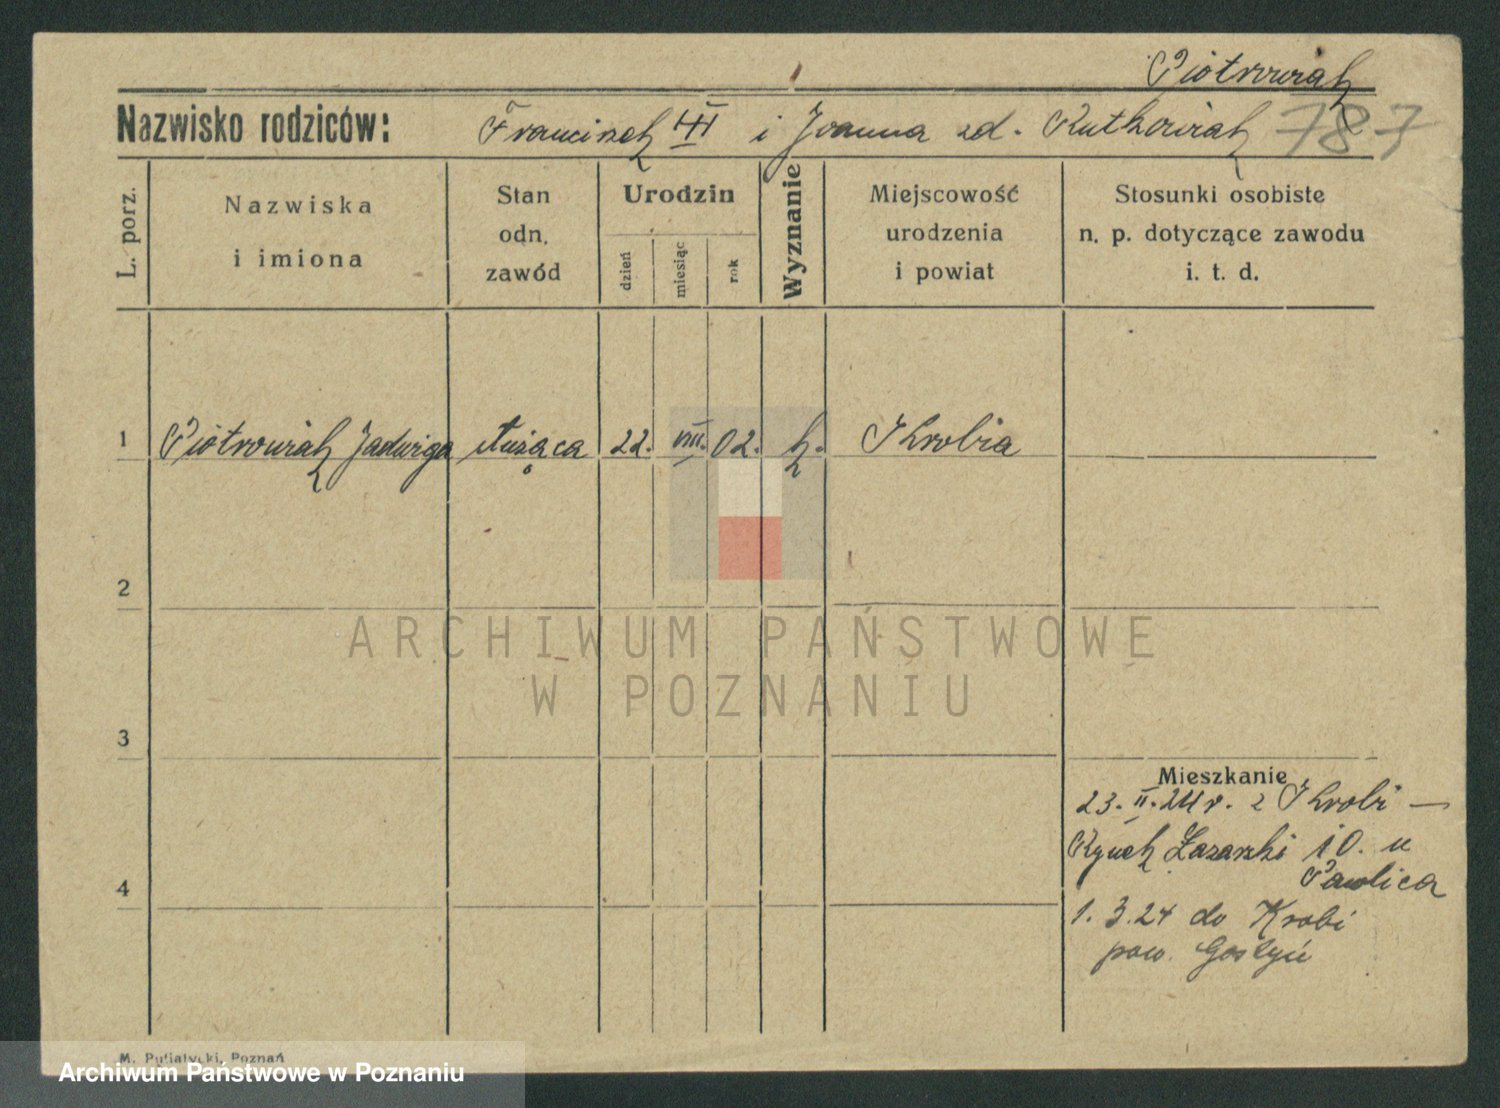 Piotrowiak
Nazwisko rodziców: Franciszek III i Joanna zd. Rutkowiak 787
L. porz.
Nazwiska
i imiona
Stan
odn.
zawód
Urodzin
dzień
miesiąc
rok
Wyznanie
Miejscowość
urodzenia
i powiat
Stosunki osobiste
n. p. dotyczące zawodu
i. t. d.
1 Piotrowiak Jadwiga służąca 22. VIII. 02. k. Krobia
2
ARCHIWUM PAŃSTWOWE
W POZNANIU
3
Mieszkanie
23. II. 24 r. z Krobi —
Rynek Łazarski 10. u
Pawlica
4
1. 3.24 do Krobi
pow. Gostyń
M. Putiatycki, Poznań
Archiwum Państwowe w Poznaniu